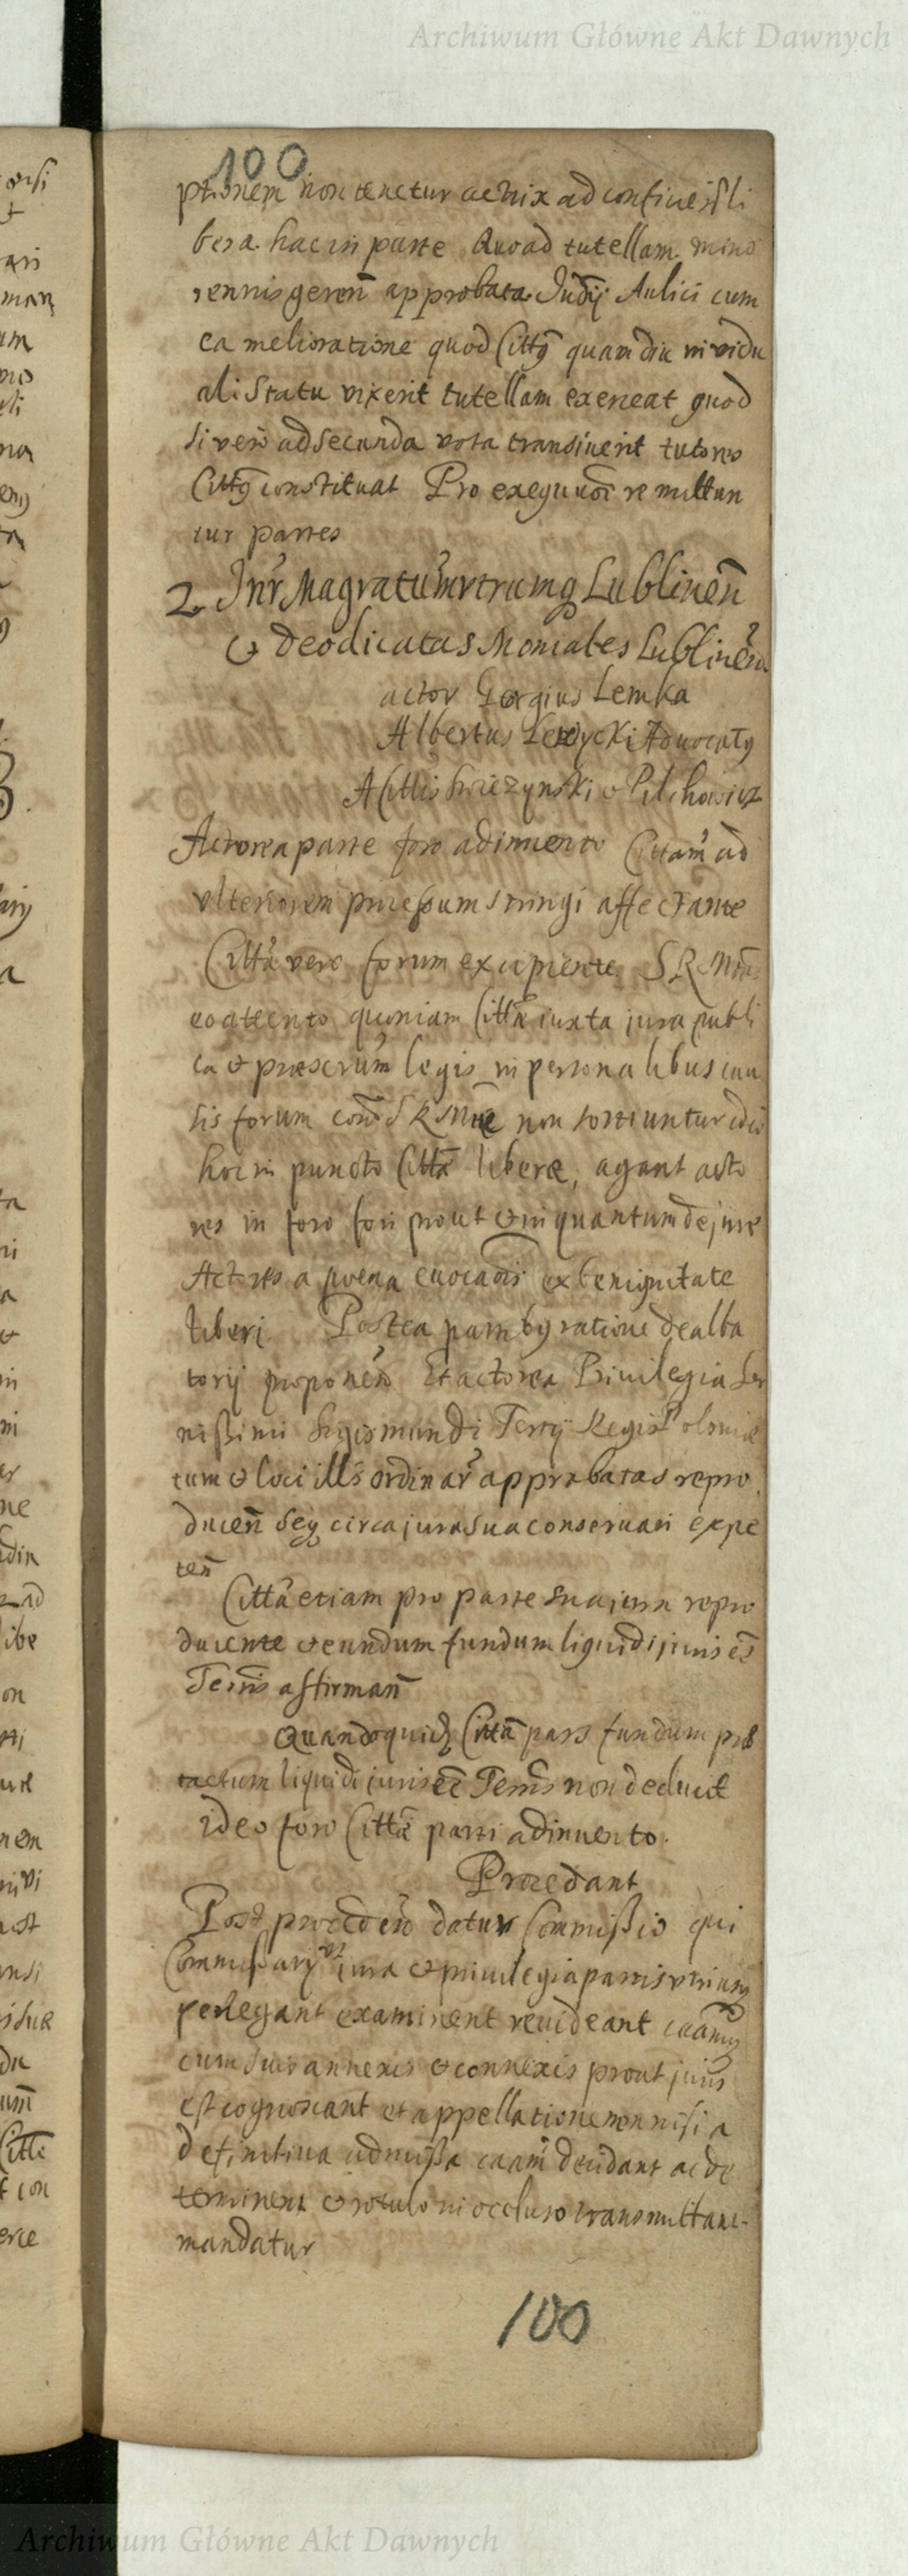 Archiwum Główne Akt Dawnych
100
ptionem non tenetur actrix ad
bera hac in parte Quoad tutellam mino
rennis geren̄ approbata Judȳ Aulici cum
ea melioratione quod Citt9 quamdiu in vidu
ali Statu vixerit tutellam exerceat quod
si vero ad secunda vota transiverit tutores
Citt9 constituat Pro exequuōe remittun
tur partes
2 Inr̄ Magratūm utrumq Lublinen̄
& Deo dicatas Moniales Lublinen̄
actor Georgius Lemka
Albertus Advocat9
A Cittis & Pilchowicz
Actorea parte foro adinvento Cittam̄ ad
ulteriorem processum stringi affectante
Citta vero forum excipiente S R Mtās
eo attento quoniam Citta iuxta jura publi
ca & præscrtum̄ legis in personalibus cau
sis forum corā S R Mtte non sortiuntur ideo
hoc in puncto Citta liberæ, agant acto
res in foro fori prout & in quantum de jure
Actores a poena evocaōis ex benignitate
liberi Postea partib9 ratione dealba
torij proponen̄ Et actorea Privilegia Ser
nissimi Sigismundi Tertij Regis Poloniæ
tum & loci illīs ordinar̄ approbatas repro
ducen̄ seq circa jura sua conservari expe
ten̄
Citta etiam pro parte sua jura repro
ducente & eundum fundum liquidi juris eē
Terrīs affirman̄
Quandoquidē Citta pars fundum præ
tactum liquidi juris eē Terrīs non deducit
ideo foro Cittæ parti adinvento.
Procedant
Post proceden̄ datur Commissio qui
Commissarij ut jura & privilegia partis utriusq
perlegant examinent revideant caamq
cum suis annexis & connexis prout juris
est cognoscant et appellatione non nisi a
definitiva admissa caam̄ decidant ac de
terminent & rotulo in occluso transmittant
mandatur
100
Archiwum Główne Akt Dawnych